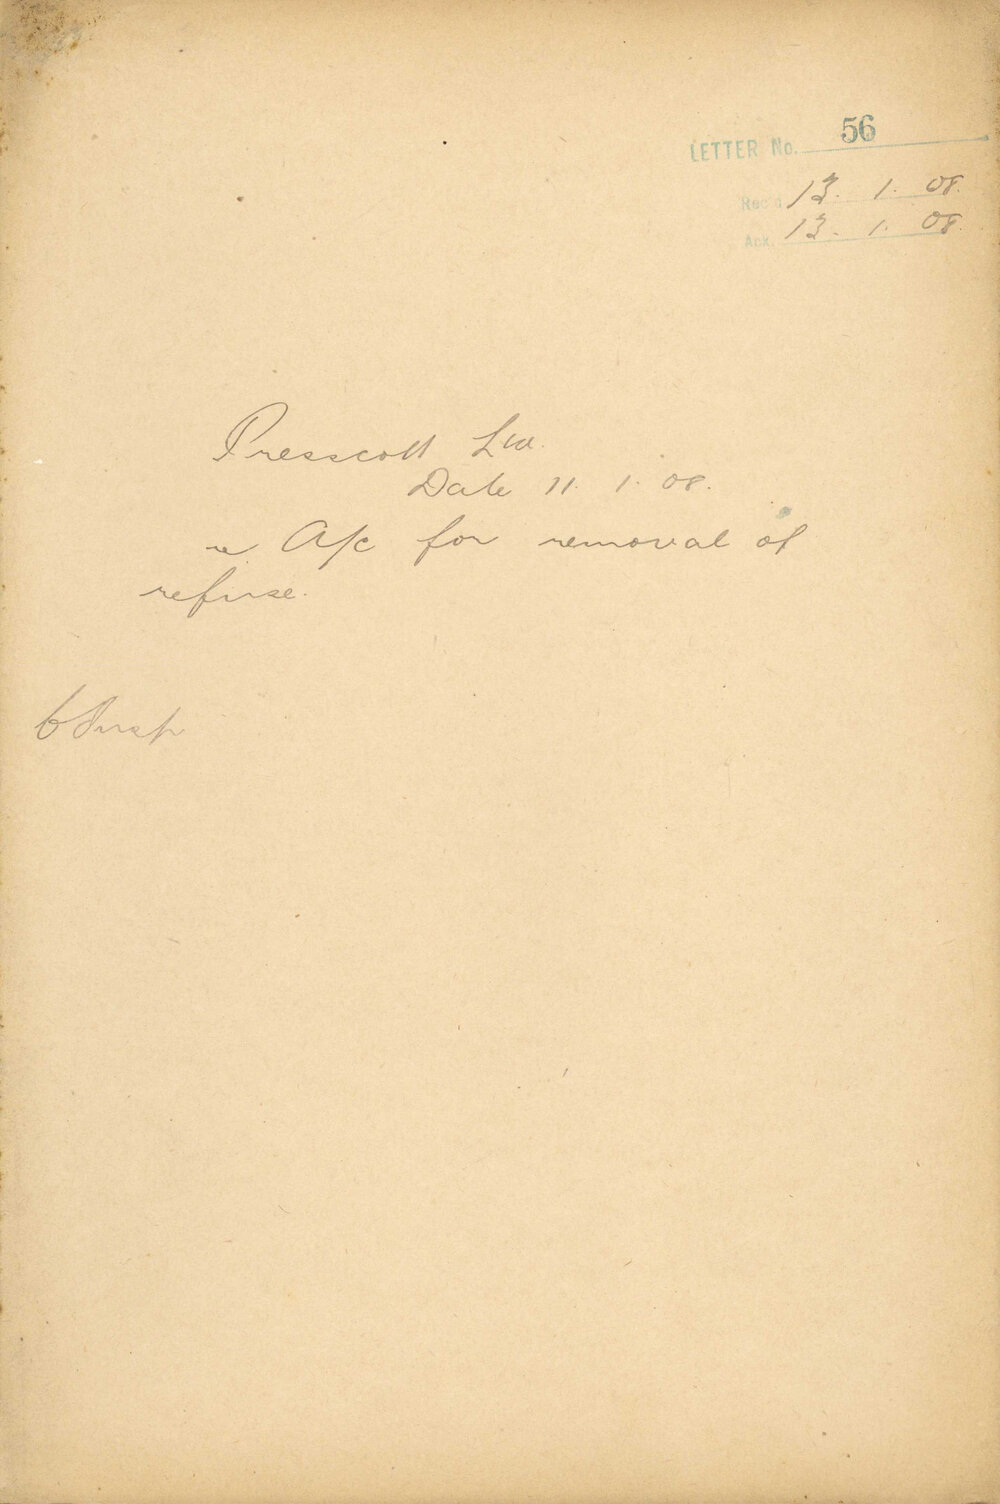 LETTER No. 56
Rec'd 13. 1. 08.
Ack. 13. 1. 08.
Presscott Ltd.
Date 11. 1. 08.
re A/c for removal of
refuse.
C Insp